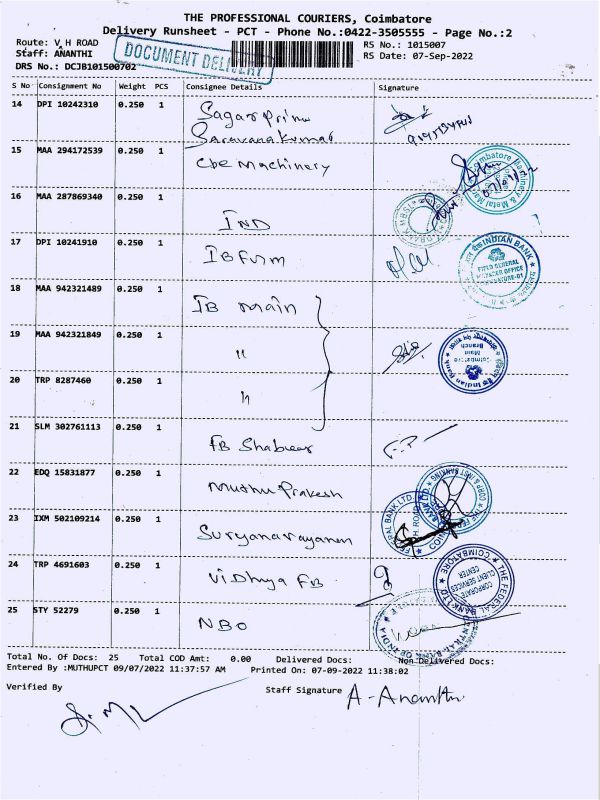 THE PROFESSIONAL COURIERS, Coimbatore
Delivery Runsheet - PCT - Phone No.:0422-3505555 - Page No.:2
Route: V H ROAD
Staff: ANANTHI
DRS No.: DCJB101500702
DOCUMENT DELIVERY
RS No.: 1015007
RS Date: 07-Sep-2022
S No Consignment No Weight PCS Consignee Details Signature
14 DPI 10242310 0.250 1 Sagar Prima
Saravana Kumar
15 MAA 294172539 0.250 1 Cbe Machinery
16 MAA 287869340 0.250 1 IND
17 DPI 10241910 0.250 1 IB Furm
INDIAN BANK
FIELD GENERAL
MANAGER OFFICE
18 MAA 942321489 0.250 1 IB main
19 MAA 942321849 0.250 1 "
Indian Bank
Coimbatore
Main
Branch
20 TRP 8287460 0.250 1 "
21 SLM 302761113 0.250 1 FB Shabeer
22 EDQ 15831877 0.250 1 Muthu Prakash
23 IXM 502109214 0.250 1 Suryanarayanan
24 TRP 4691603 0.250 1 Vidhya FB
THE FEDERAL BANK LTD
COIMBATORE
CORPORATE
CLIENT SERVICES
CENTER
25 STY 52279 0.250 1 NBO
CENTRAL BANK OF INDIA
Total No. Of Docs: 25 Total COD Amt: 0.00 Delivered Docs: Non Delivered Docs:
Entered By :MUTHUPCT 09/07/2022 11:37:57 AM Printed On: 07-09-2022 11:38:02
Verified By
Staff Signature A-Ananthi